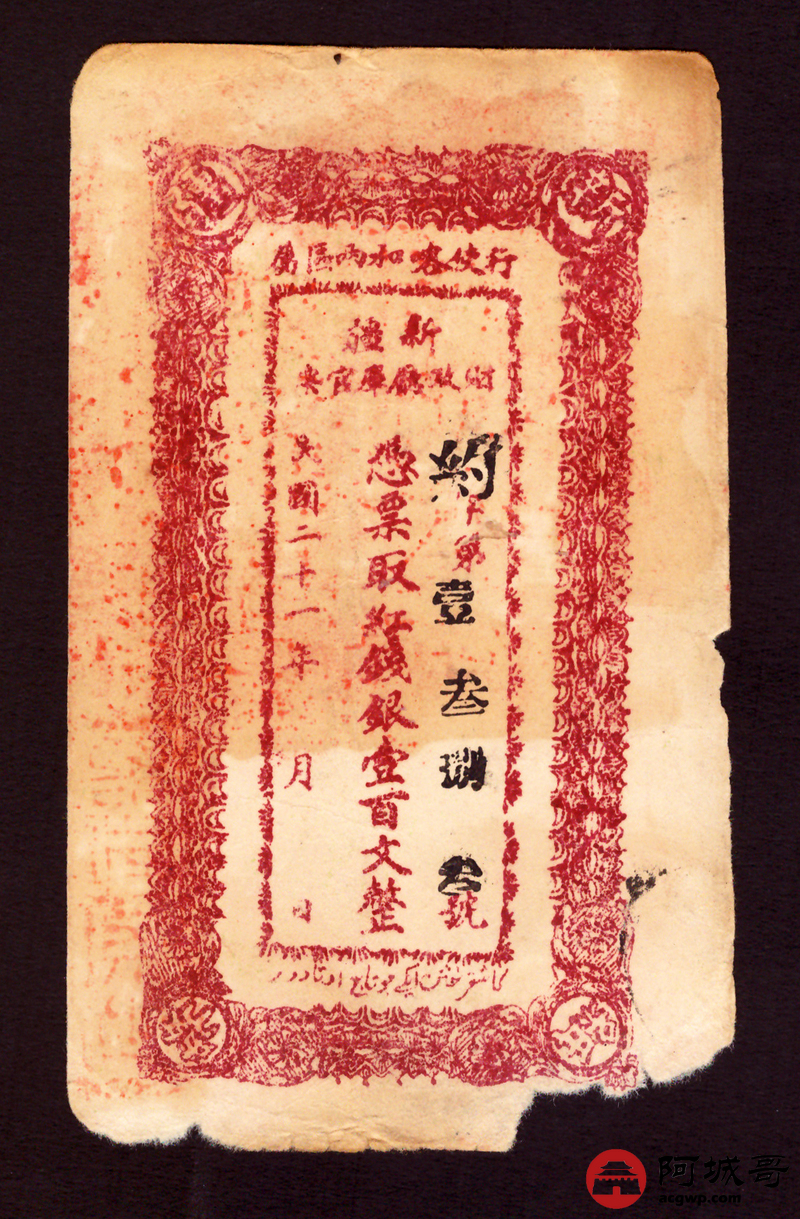 行使喀和兩區
新疆
財政廳庫官
約字第壹叁捌叁號
憑票取紅錢銀壹百文整
民國二十一年 月 日
كاشغر خوتن ایکی
阿城哥
acgwp.com